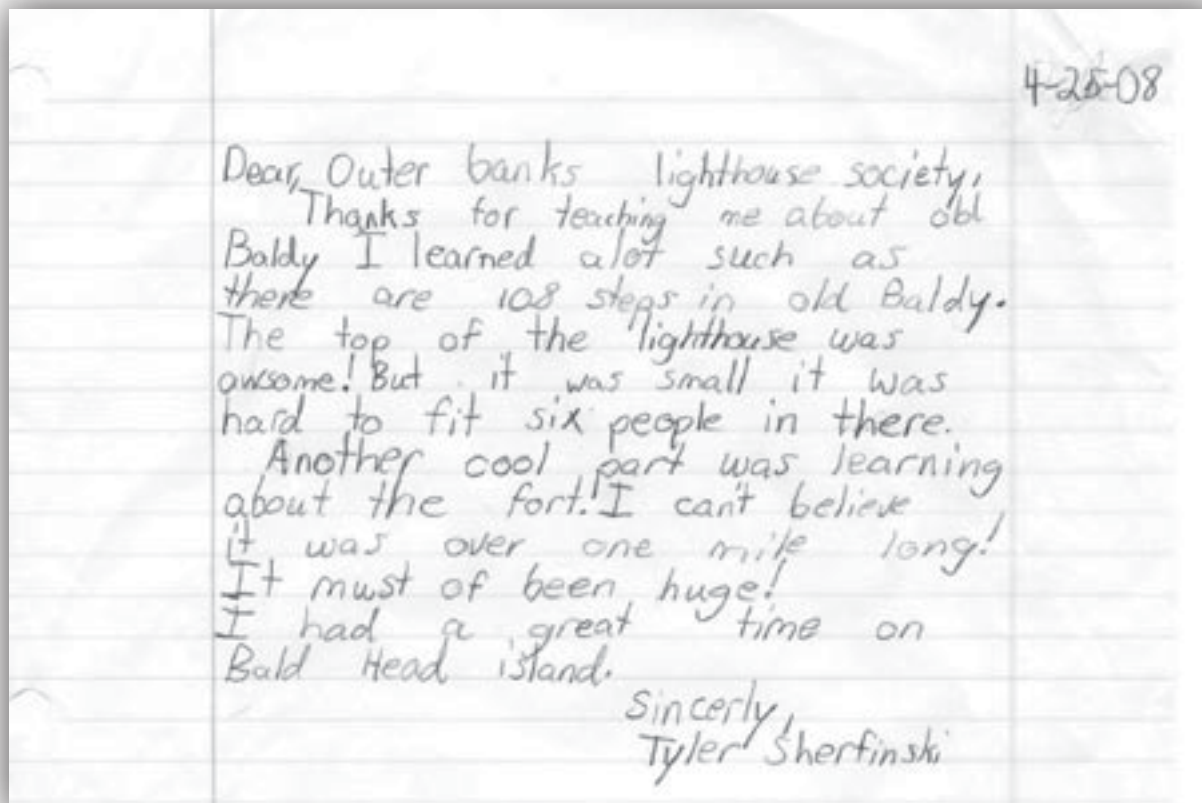 4-25-08
Dear, Outer banks lighthouse society,
Thanks for teaching me about old
Baldy I learned alot such as
there are 108 steps in old Baldy.
The top of the lighthouse was
awsome! But it was small it was
hard to fit six people in there.
Another cool part was learning
about the fort! I can't believe
it was over one mile long!
It must of been huge!
I had a great time on
Bald Head island.
Sincerly,
Tyler Sherfinski